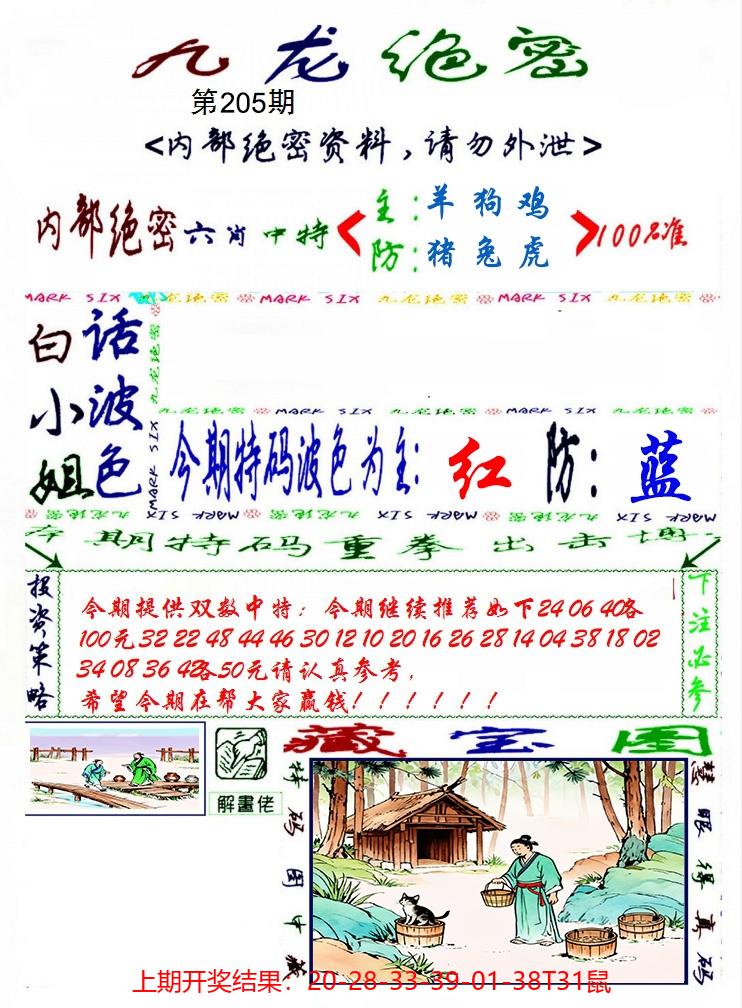 九龙绝密
第205期
<内部绝密资料，请勿外泄>
内部绝密六肖中特 主：羊狗鸡 100%准
防：猪兔虎
MARK SIX 九龙绝密 MARK SIX 九龙绝密 MARK SIX 九龙绝密
白小姐
话波色
九龙绝密
MARK SIX
九龙绝密 MARK SIX 九龙绝密 MARK SIX 九龙绝密
今期特码波色为主：红 防：蓝
MARK SIX 九龙绝密 MARK SIX 九龙绝密 MARK SIX 九龙绝密
期特码重拳出击
投资策略
今期提供双数中特：今期继续推荐如下24 06 40各
100元32 22 48 44 46 30 12 10 20 16 26 28 14 04 38 18 02
34 08 36 42各50元请认真参考，
希望今期在帮大家赢钱！！！！！！
下注必参
解畫佬
藏宝图
特码图中藏
慧眼得真码
上期开奖结果：20-28-33-39-01-38T31鼠